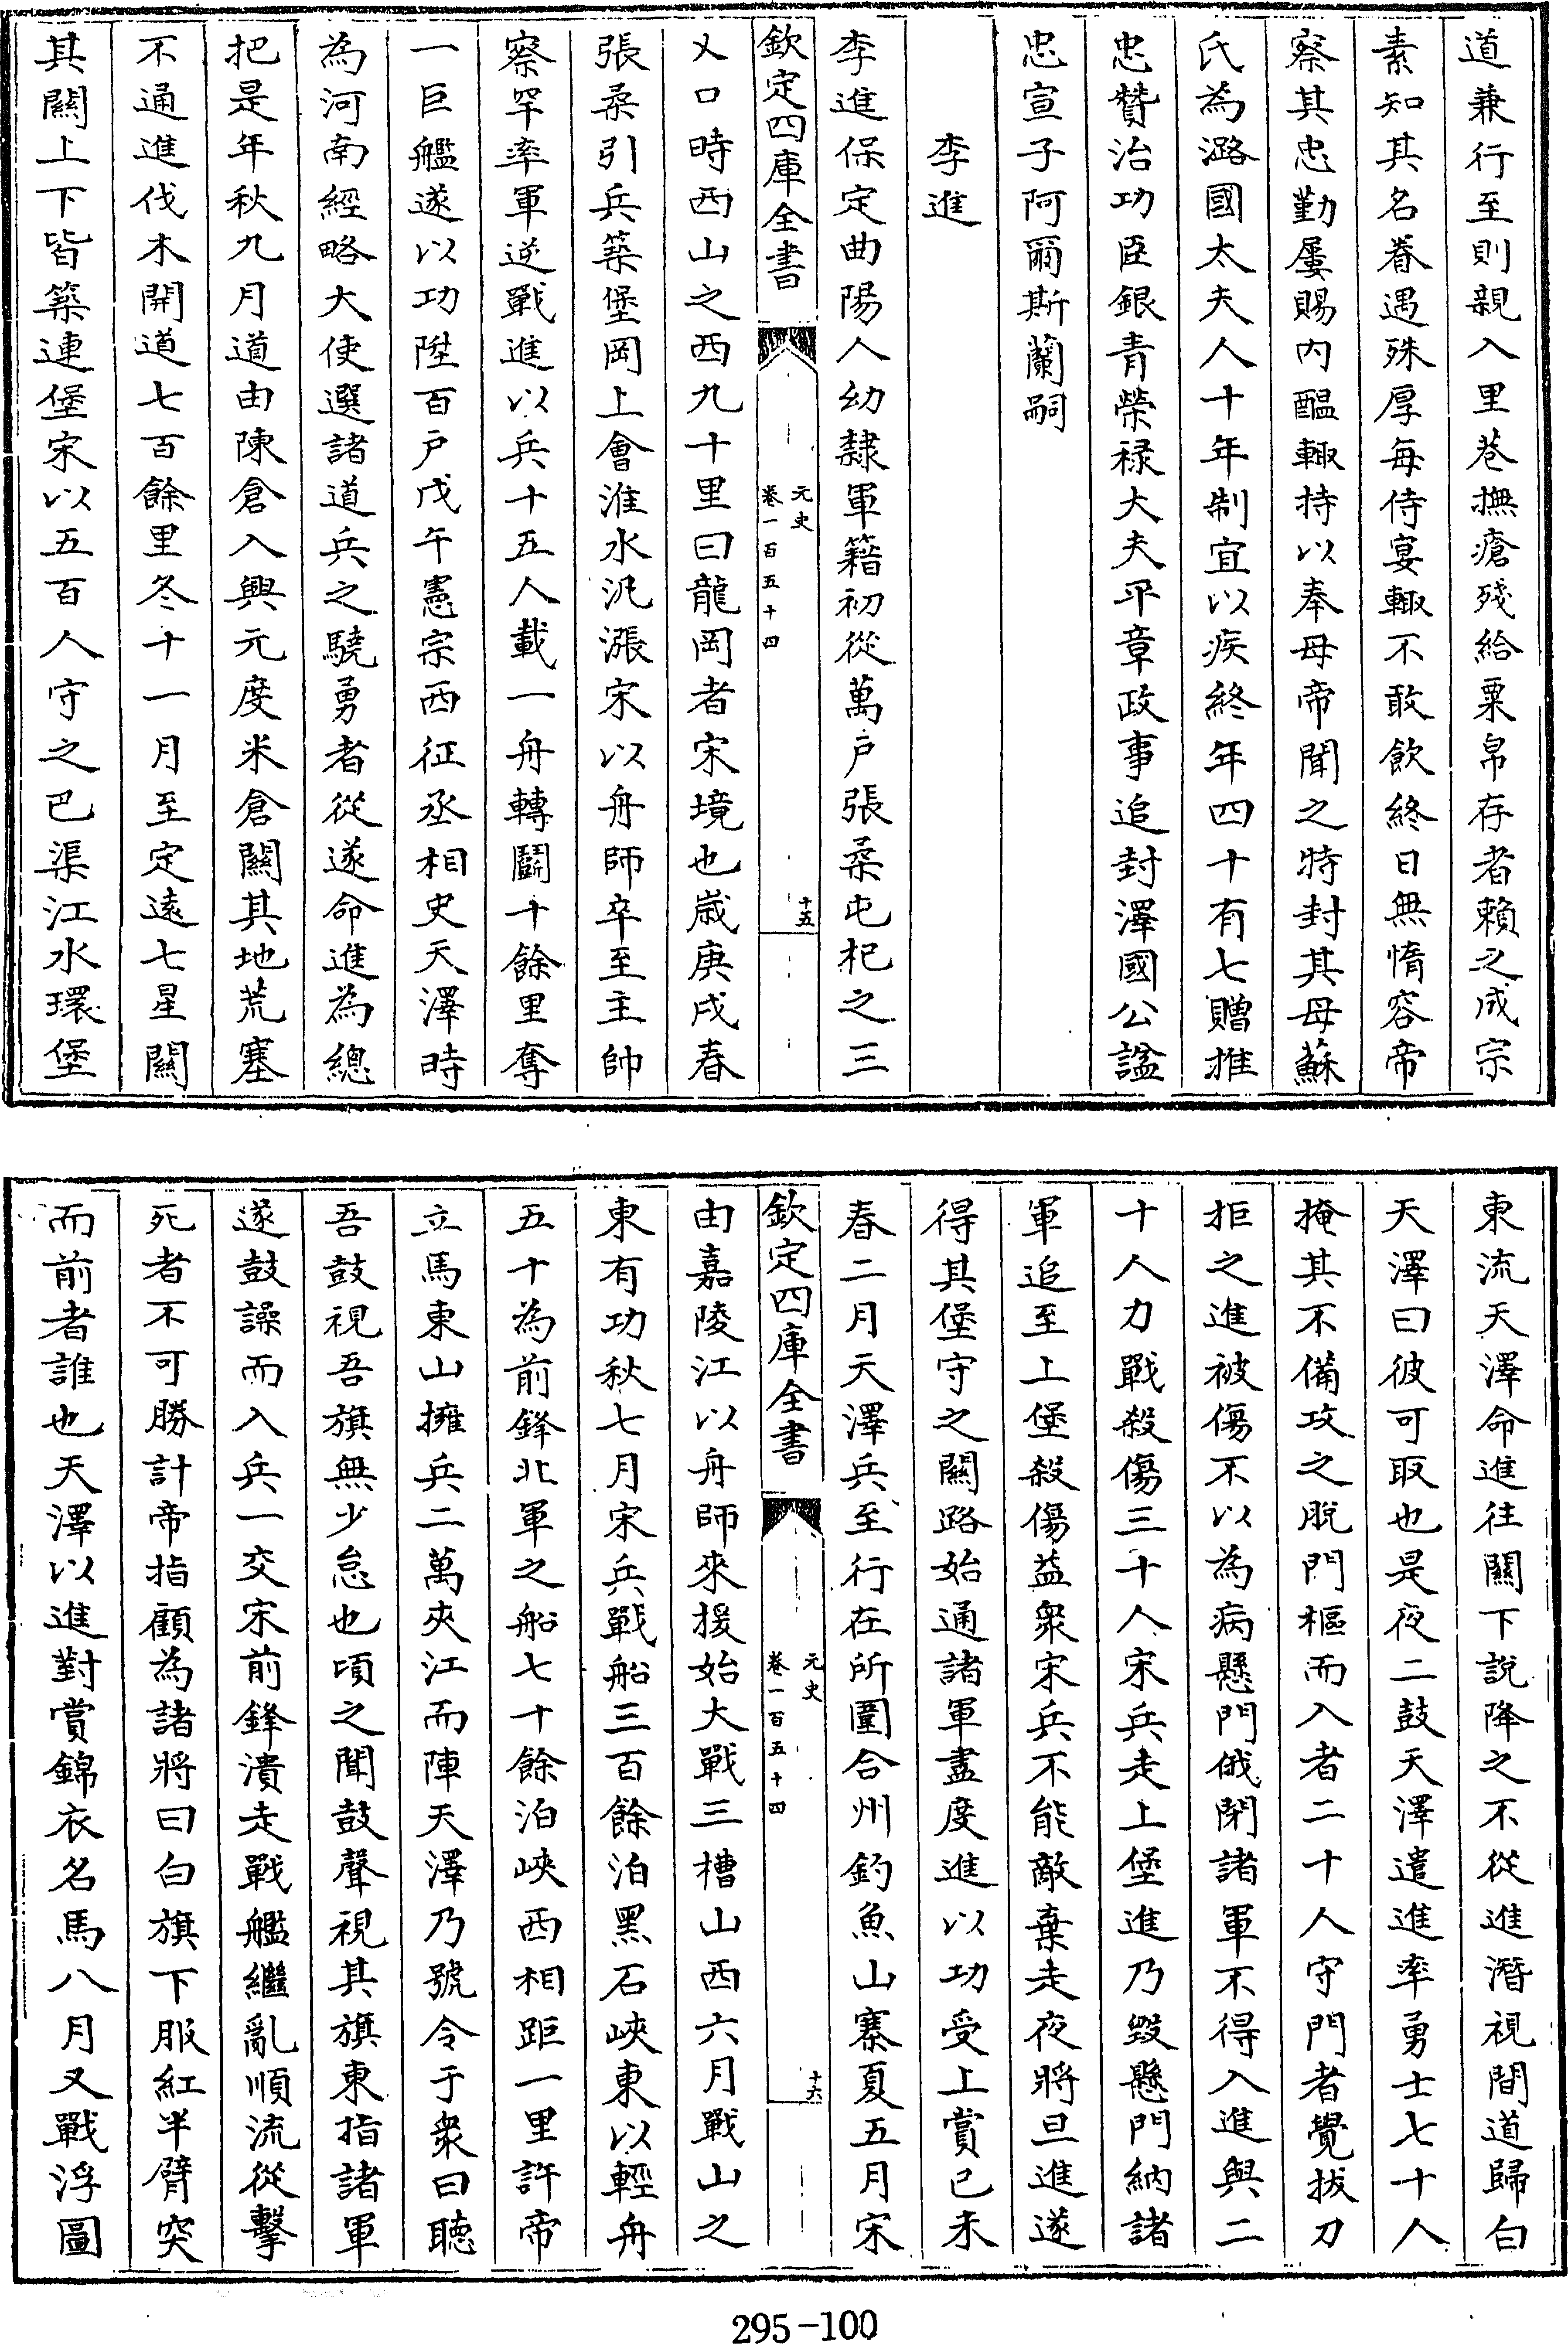 道兼行至則親入里巷撫瘡殘給粟帛存者賴之成宗
素知其名眷遇殊厚每侍宴輙不敢飲終日無惰容帝
察其忠勤屢賜内醖輙持以奉母帝聞之特封其母蘇
氏為潞國太夫人十年制宜以疾終年四十有七贈推
忠贊治功臣銀青榮禄大夫平章政事追封澤國公諡
忠宣子阿爾斯蘭嗣
李進
李進保定曲陽人幼隸軍籍初從萬户張柔屯杞之三
欽定四庫全書
元史
卷一百五十四
十五
乂口時西山之西九十里曰龍岡者宋境也歳庚戌春
張柔引兵築堡岡上會淮水汎漲宋以舟師卒至主帥
察罕率軍逆戰進以兵十五人載一舟轉鬬十餘里奪
一巨艦遂以功陞百户戊午憲宗西征丞相史天澤時
為河南經略大使選諸道兵之驍勇者從遂命進為總
把是年秋九月道由陳倉入興元度米倉關其地荒塞
不通進伐木開道七百餘里冬十一月至定遠七星關
其關上下皆築連堡宋以五百人守之巴渠江水環堡
東流天澤命進往關下説降之不從進潛視間道歸白
天澤曰彼可取也是夜二鼓天澤遣進率勇士七十人
掩其不備攻之脱門樞而入者二十人守門者覺拔刀
拒之進被傷不以為病懸門俄閉諸軍不得入進與二
十人力戰殺傷三十人宋兵走上堡進乃毀懸門納諸
軍追至上堡殺傷益衆宋兵不能敵棄走夜將旦進遂
得其堡守之關路始通諸軍盡度進以功受上賞已未
春二月天澤兵至行在所圍合州釣魚山寨夏五月宋
欽定四庫全書
元史
卷一百五十四
十六
由嘉陵江以舟師來援始大戰三槽山西六月戰山之
東有功秋七月宋兵戰船三百餘泊黑石峽東以輕舟
五十為前鋒北軍之船七十餘泊峽西相距一里許帝
立馬東山擁兵二萬夾江而陣天澤乃號令于衆曰聽
吾鼓視吾旗無少怠也頃之聞鼓聲視其旗東指諸軍
遂鼓譟而入兵一交宋前鋒潰走戰艦繼亂順流從擊
死者不可勝計帝指顧為諸將曰白旗下服紅半臂突
而前者誰也天澤以進對賞錦衣名馬八月又戰浮圖
295-100